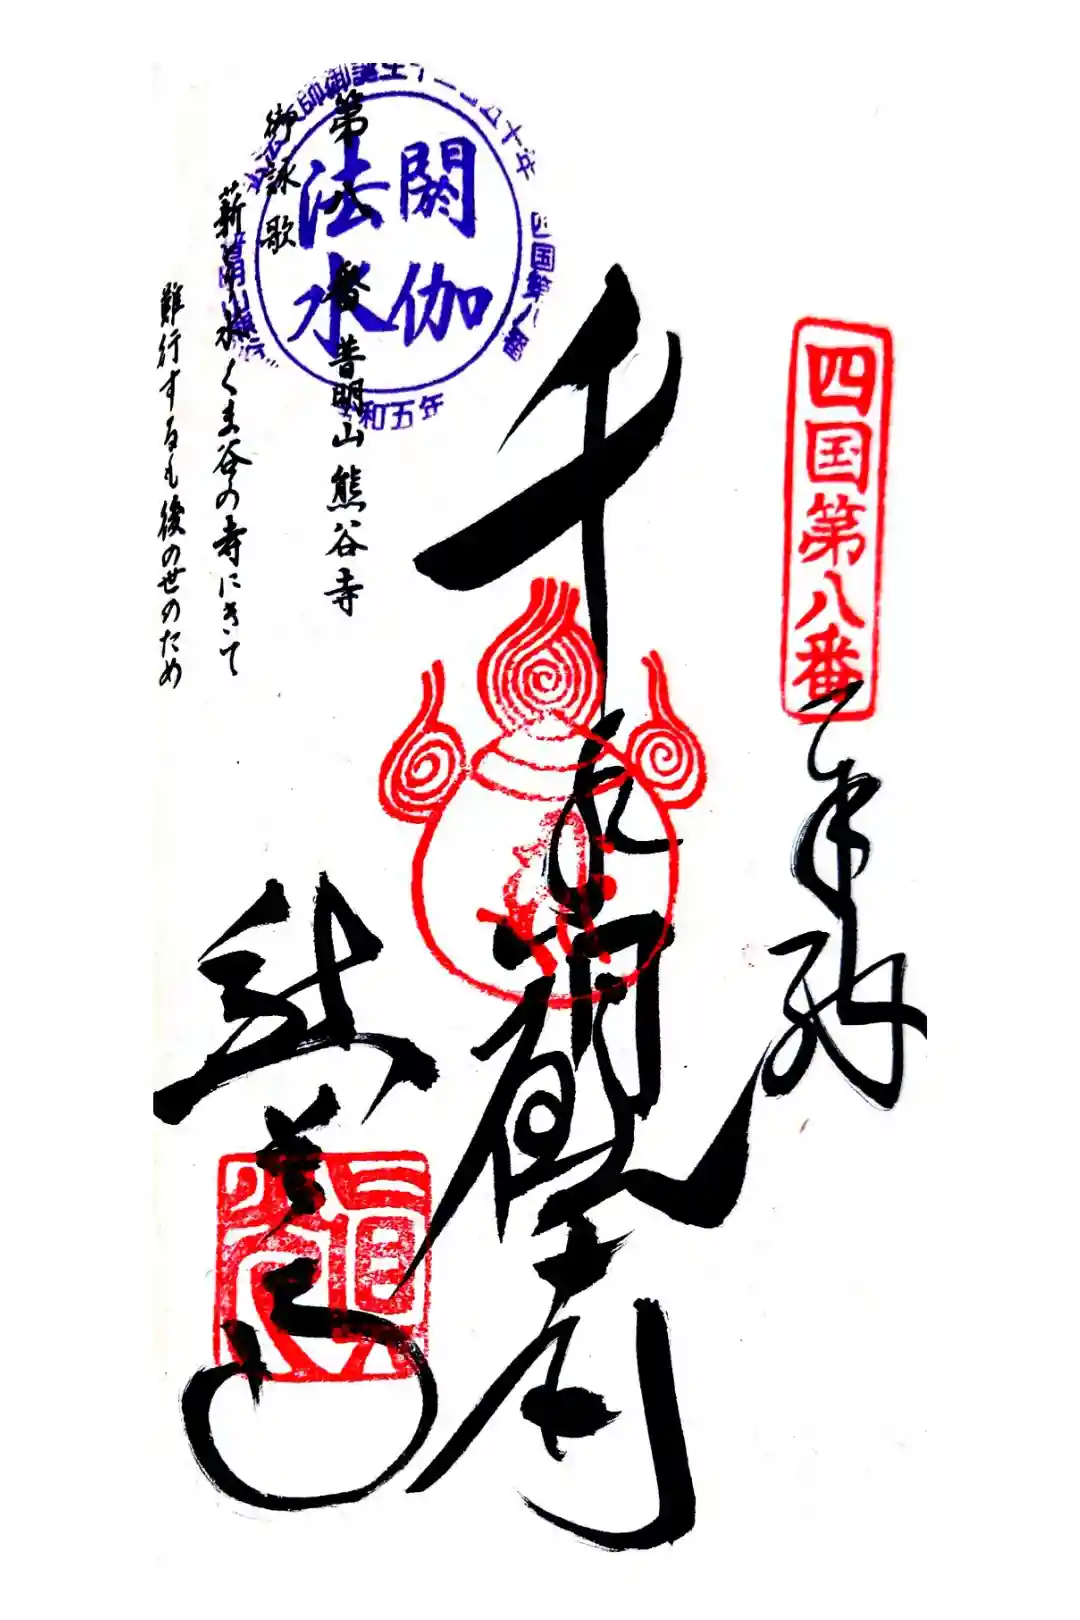 四国第八番
奉拝
千手観世音
第八番 普明山熊谷寺
御詠歌
薪とり水くま谷の寺にきて
難行するも後の世のため
閼伽
法水
御誕生千二百五十年
四国第八番
令和五年